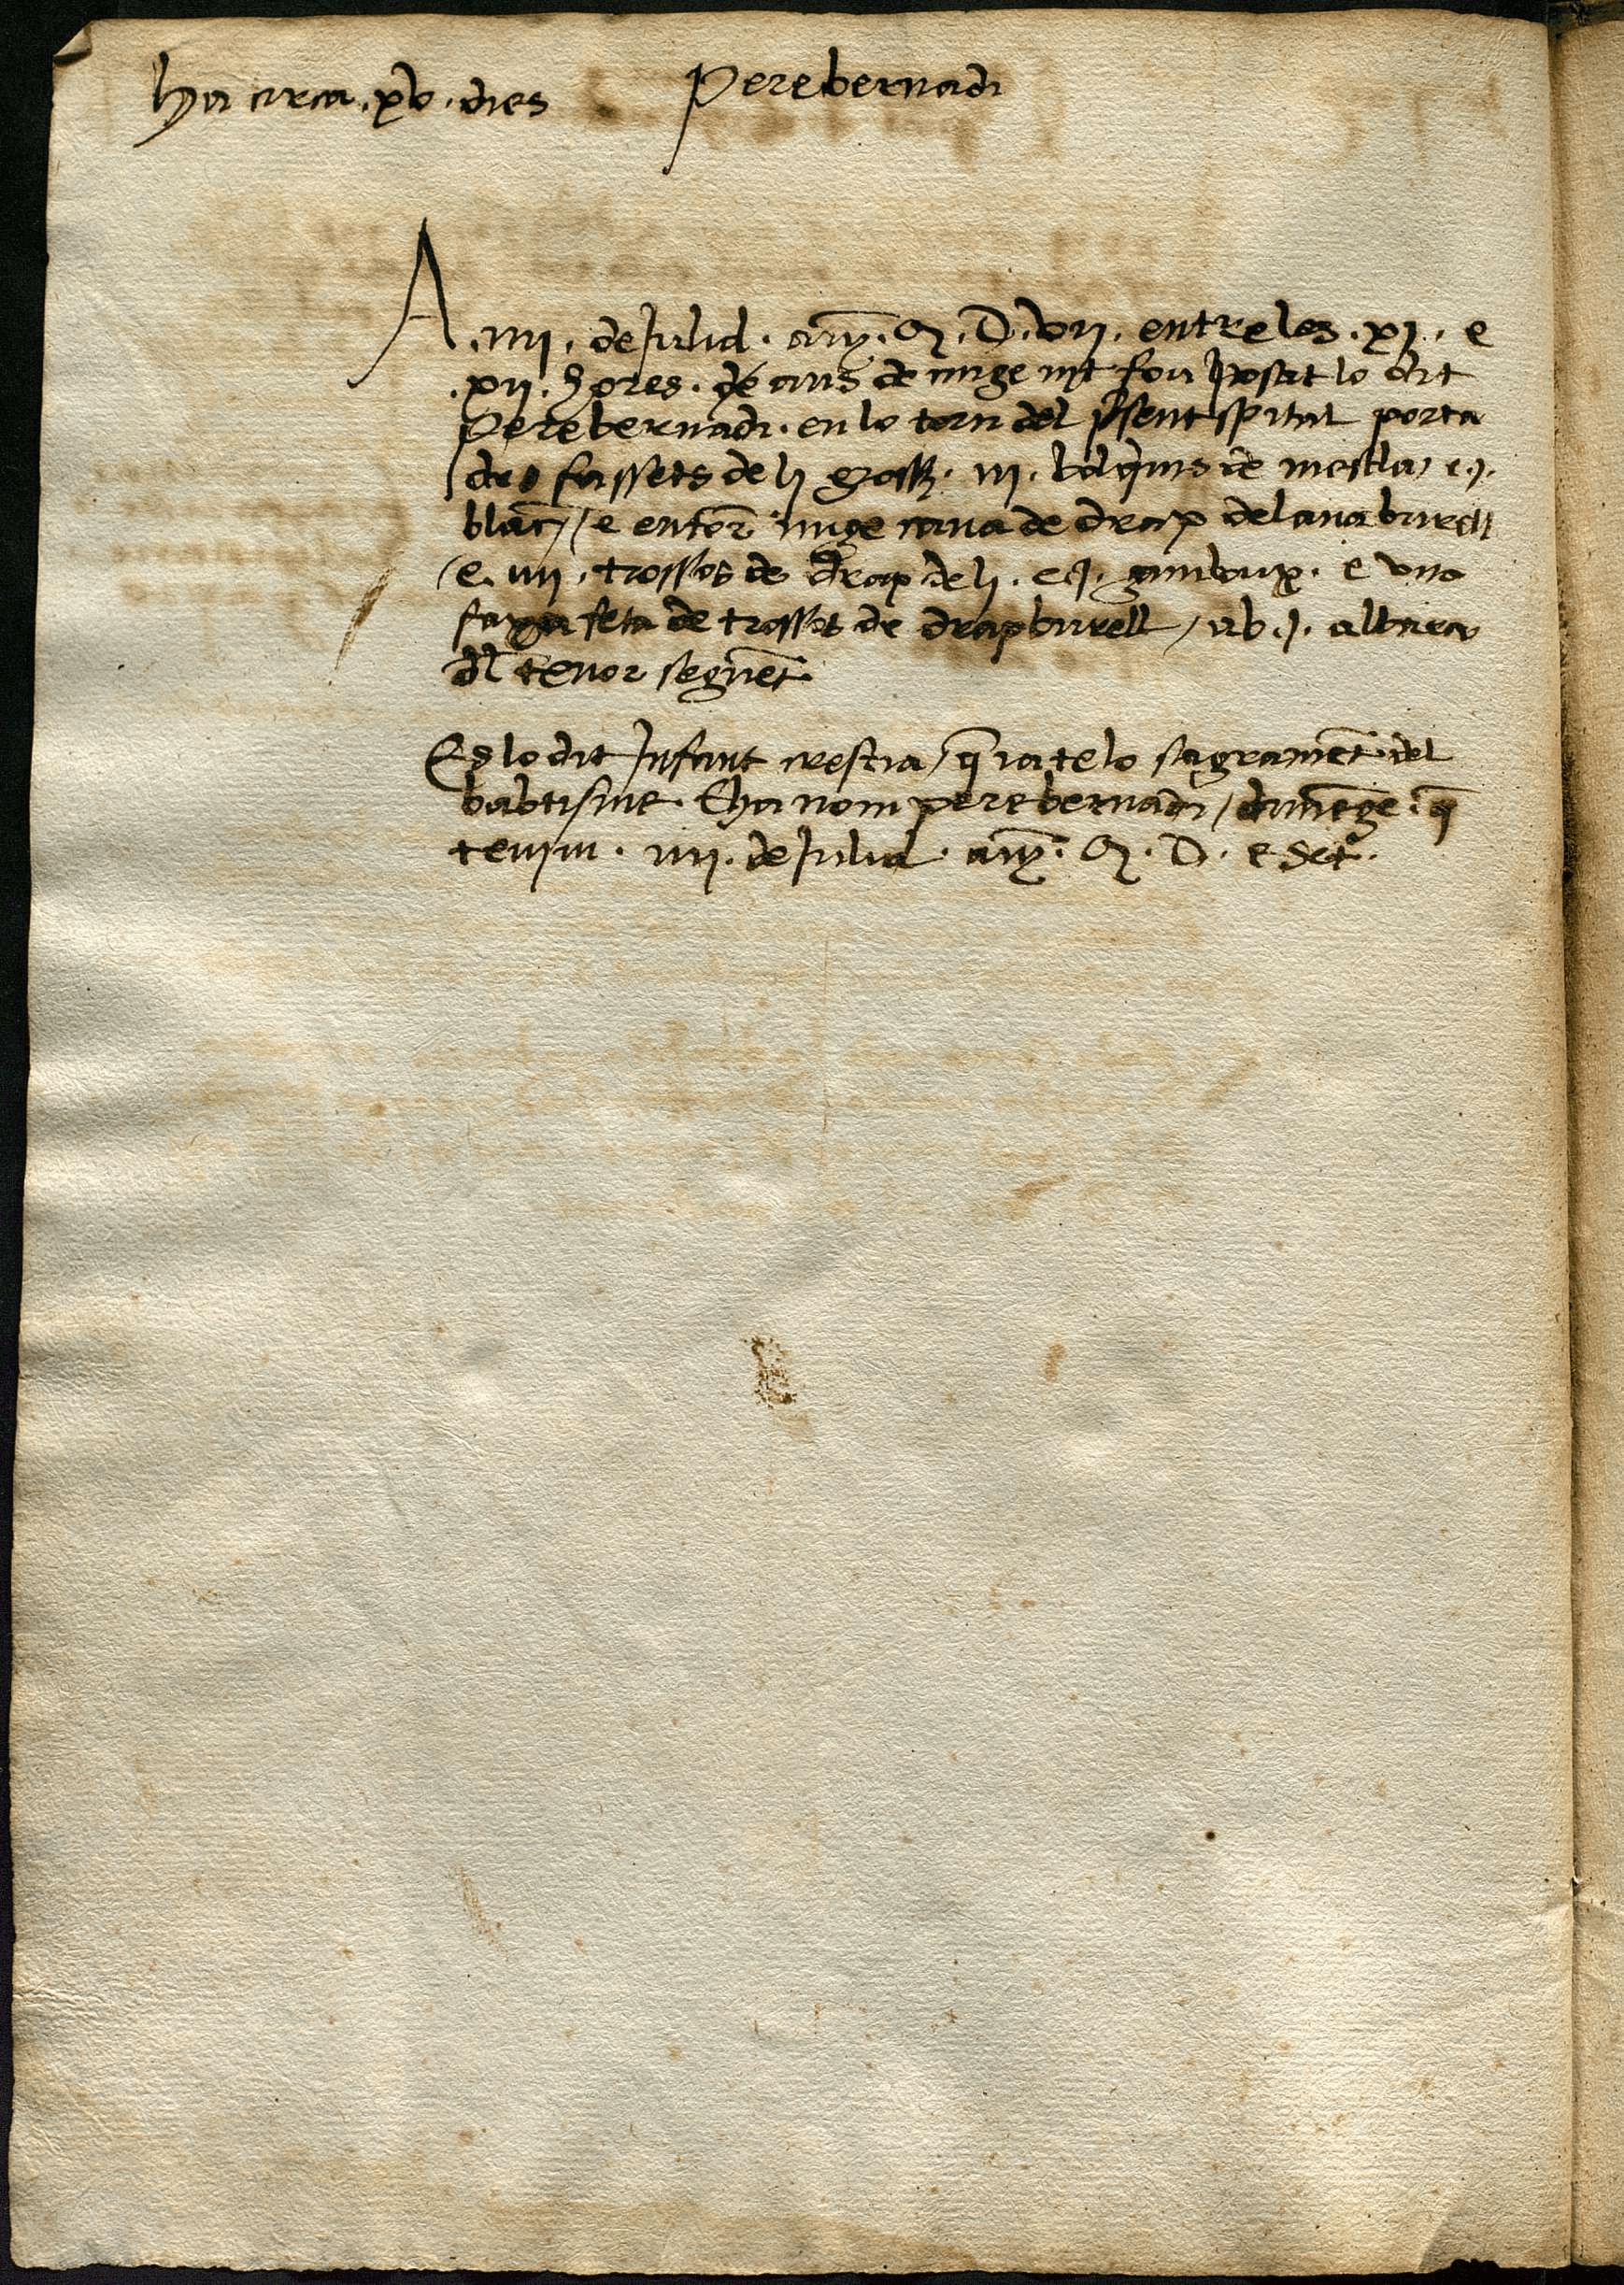 ha circa .xv. dies
Pere bernadi
A .iiii. de Juliol. any. M. D. vii. entre les .xi. e
.xii. hores. de ans de mige nit fou posat lo dit
Pere bernadi. en lo torn del psent spital porta
dos fassets de li gross. iii. bolquins de mescla, e .j.
blanc, / e entorn mige cana de drap de lana burell
/ e. iiii. trossos de drap de li. e .j. gambux. e una
faxa feta de trossos de drap burell / ab .j. albara
dl tenor seguent.
Es lo dit Infant crestia / q ia te lo sagrament del
babtisme. E ha nom pere bernadi / diumenge. q
tenim. iiii. de Juliol. any. M. D. e set.